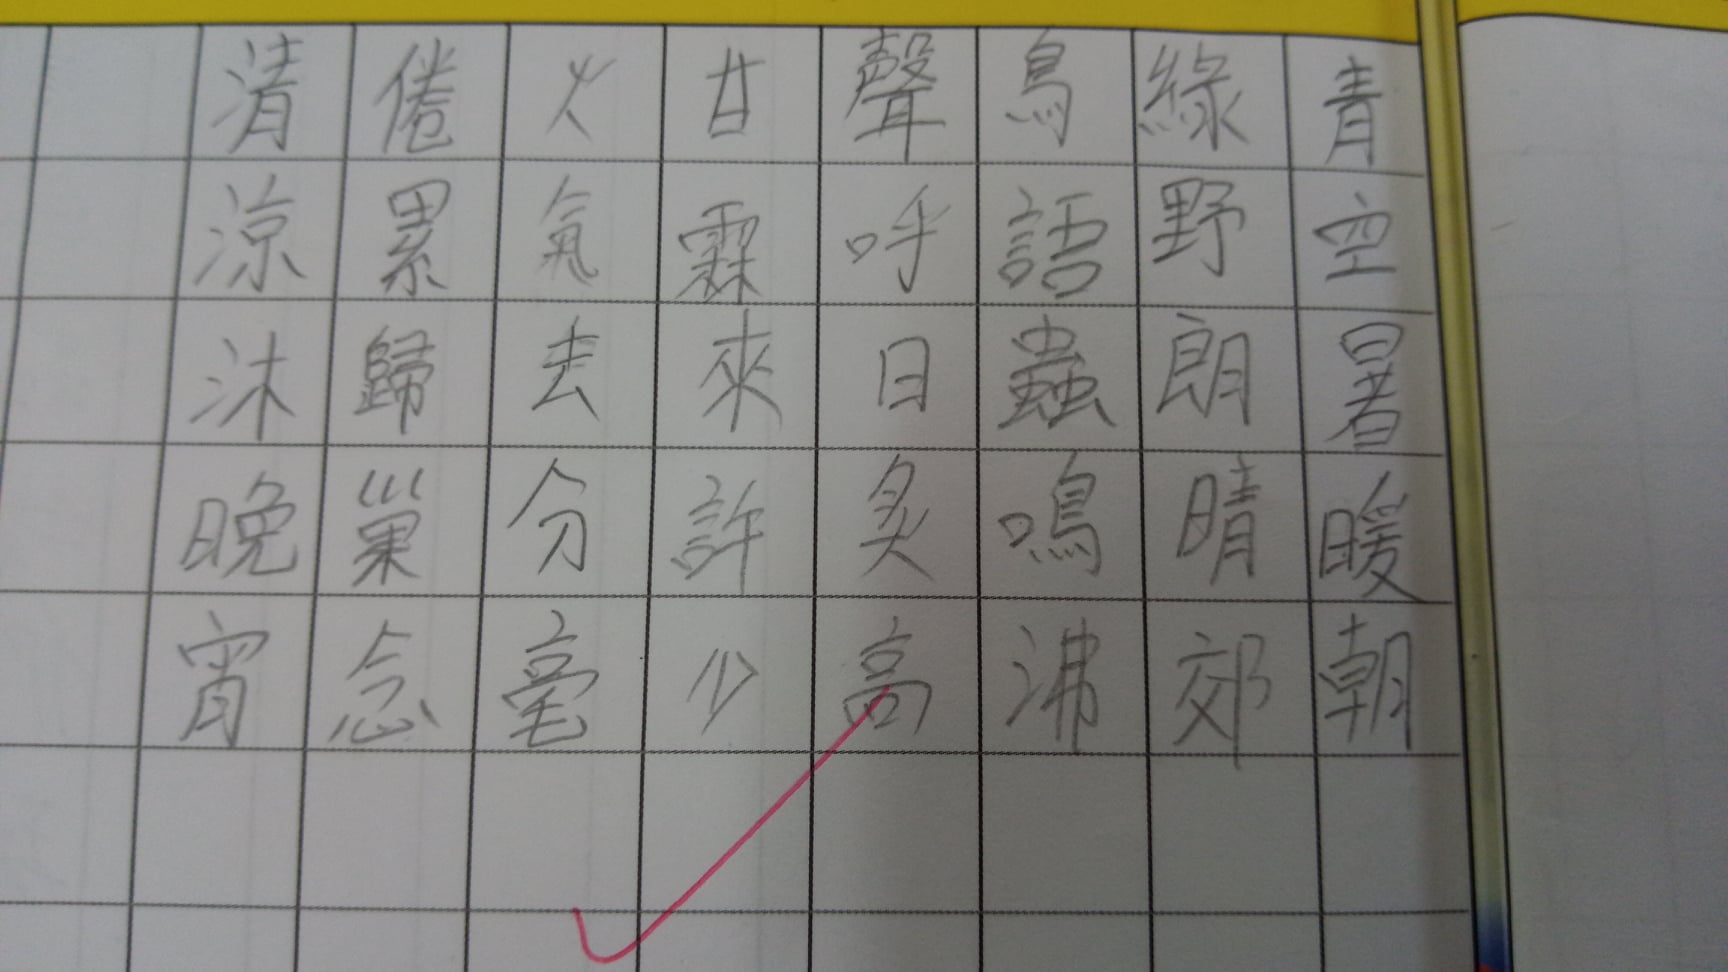 青空暑暖朝
綠野朗晴郊
鳥語蟲鳴沸
聲呼日炙高
甘霖來許少
火氣去分毫
倦累歸巢念
清涼沐晚宵